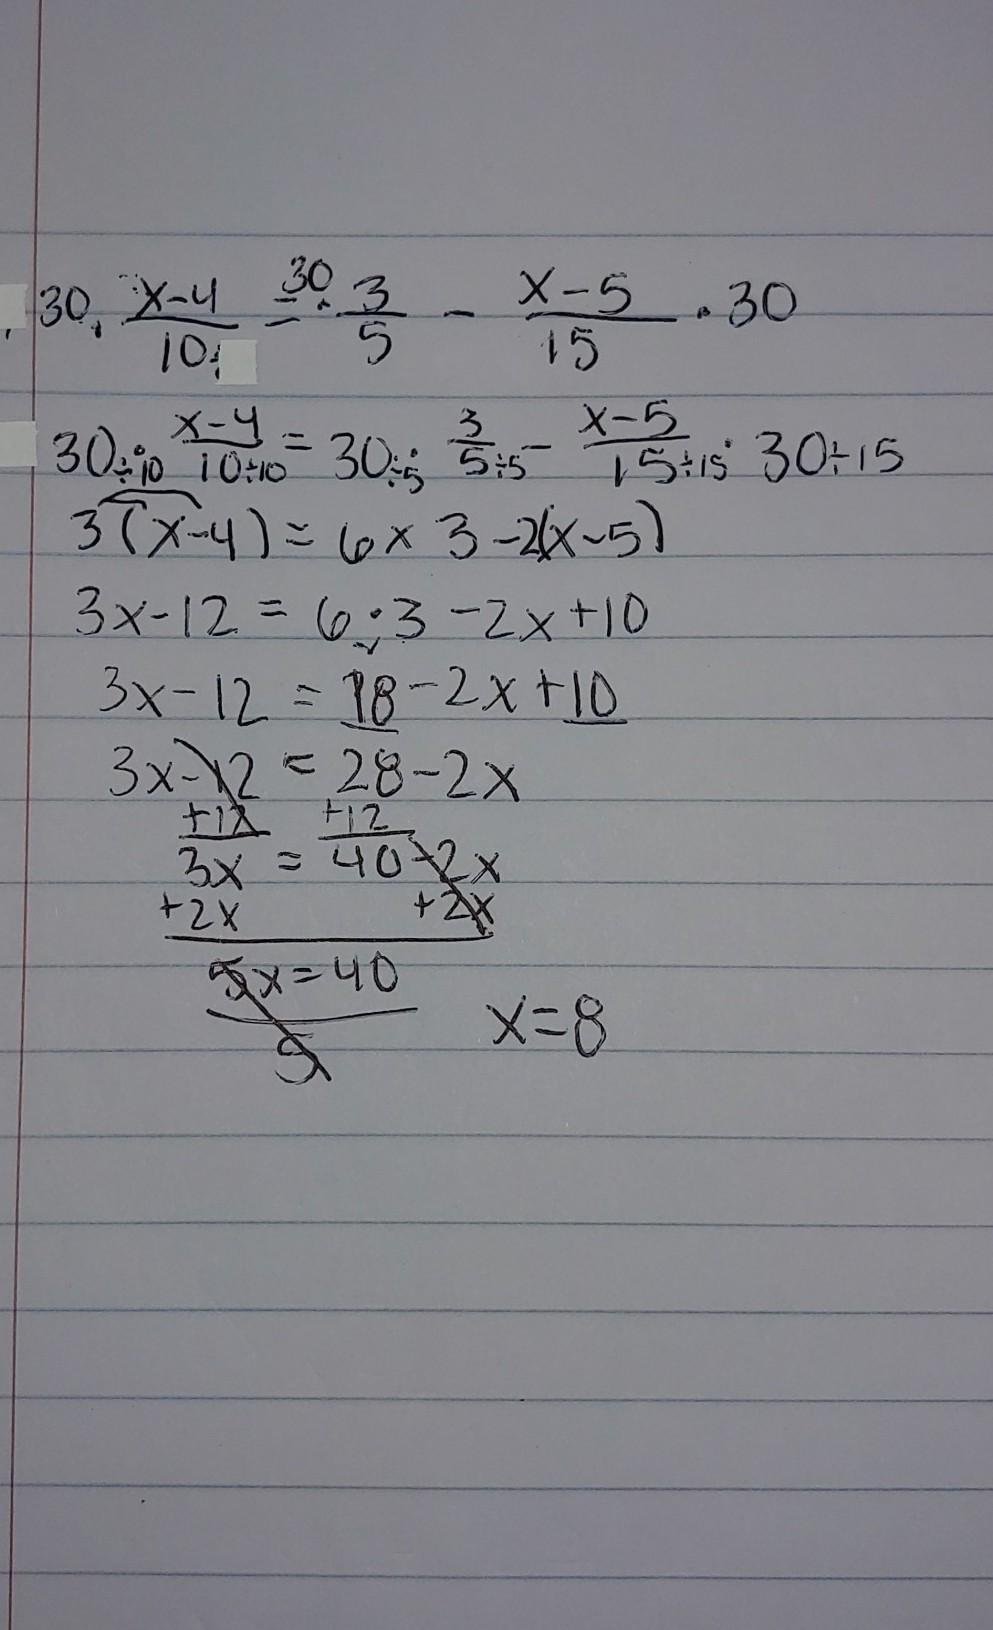 30 · x-4/10 = 30 · 3/5 - x-5/15 · 30
30÷10 · x-4/10÷10 = 30÷5 · 3/5÷5 - x-5/15÷15 · 30÷15
3(x-4) = 6 x 3 -2(x-5)
3x-12 = 6·3 -2x+10
3x-12 = 18-2x+10
3x-12 = 28-2x
+12 +12
3x = 40-2x
+2x +2x
5x=40
5 x=8